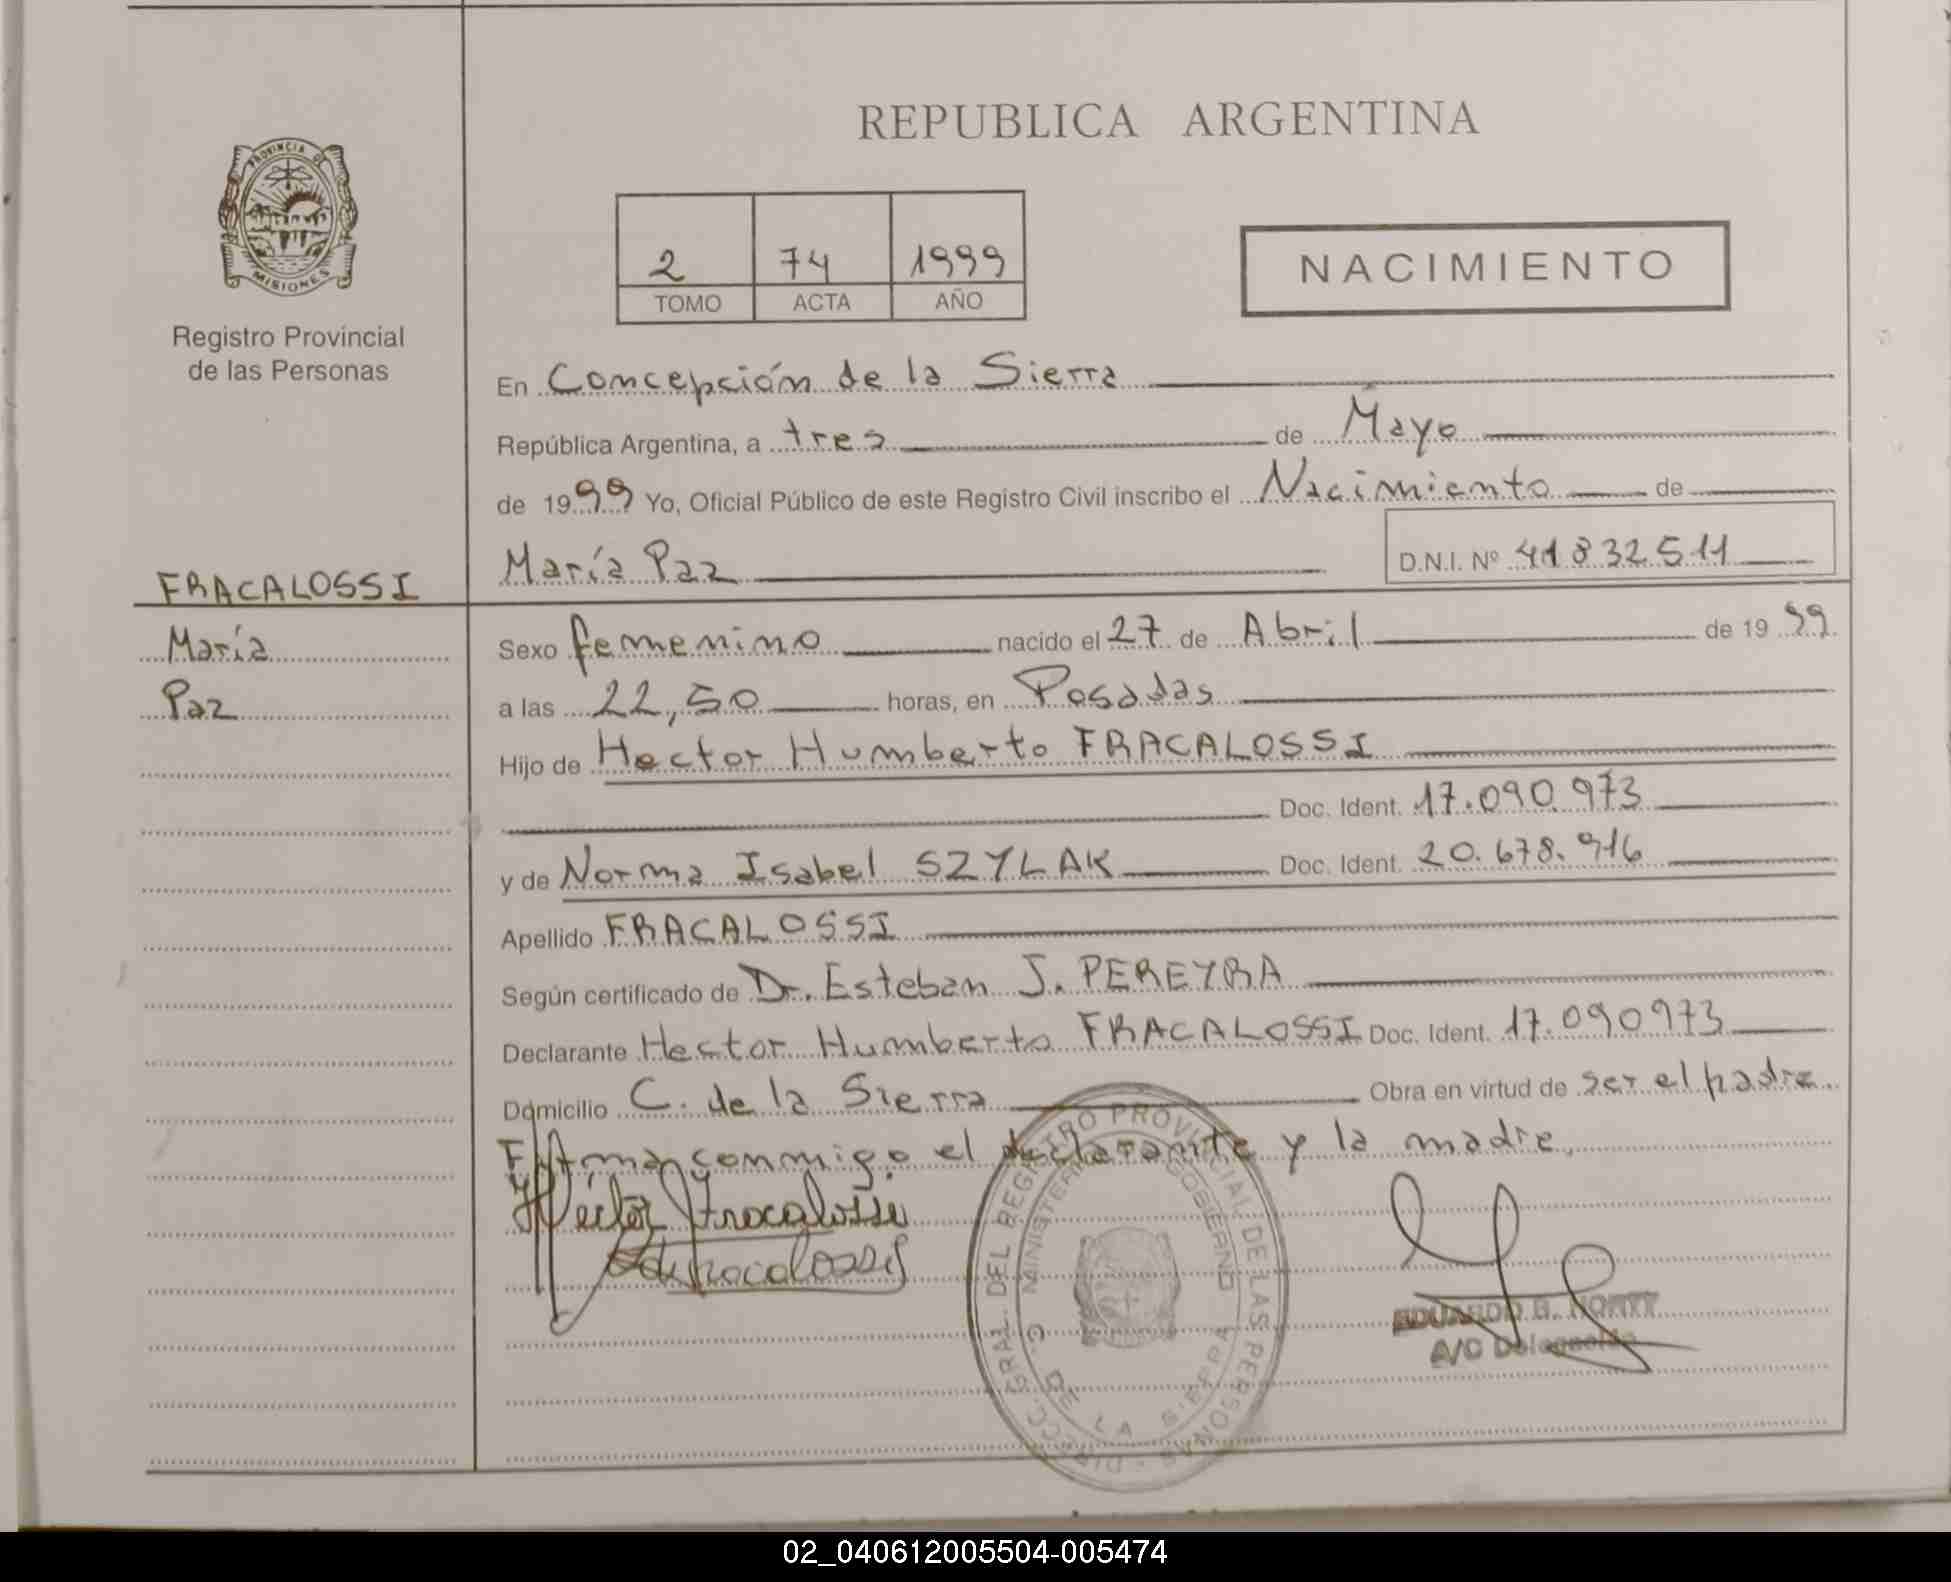 REPUBLICA ARGENTINA
PROVINCIA DE
MISIONES
Registro Provincial
de las Personas
2 74 1999
TOMO ACTA AÑO
NACIMIENTO
En Concepción de la Sierra
República Argentina, a tres de Mayo
de 1999 Yo, Oficial Público de este Registro Civil inscribo el Nacimiento de
María Paz D.N.I. Nº 41832511
FRACALOSSI
María
Paz
Sexo femenino nacido el 27 de Abril de 1999
a las 22,50 horas, en Posadas
Hijo de Hector Humberto FRACALOSSI
Doc. Ident. 17.090.973
y de Norma Isabel SZYLAK Doc. Ident. 20.678.916
Apellido FRACALOSSI
Según certificado de Dr. Esteban J. PEREYRA
Declarante Hector Humberto FRACALOSSI Doc. Ident. 17.090973
Domicilio C. de la Sierra Obra en virtud de ser el padre.
Firman conmigo el declarante y la madre.
Héctor Fracalossi
DIRECC. GRAL. DEL REGISTRO PROVINCIAL DE LAS PERSONAS
MINISTERIO GOBIERNO
C. DE LA SIERRA
EDUARDO
A/C
02_040612005504-005474